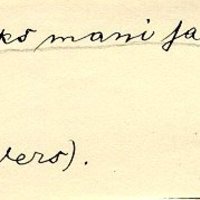 ks mani ja
vers).